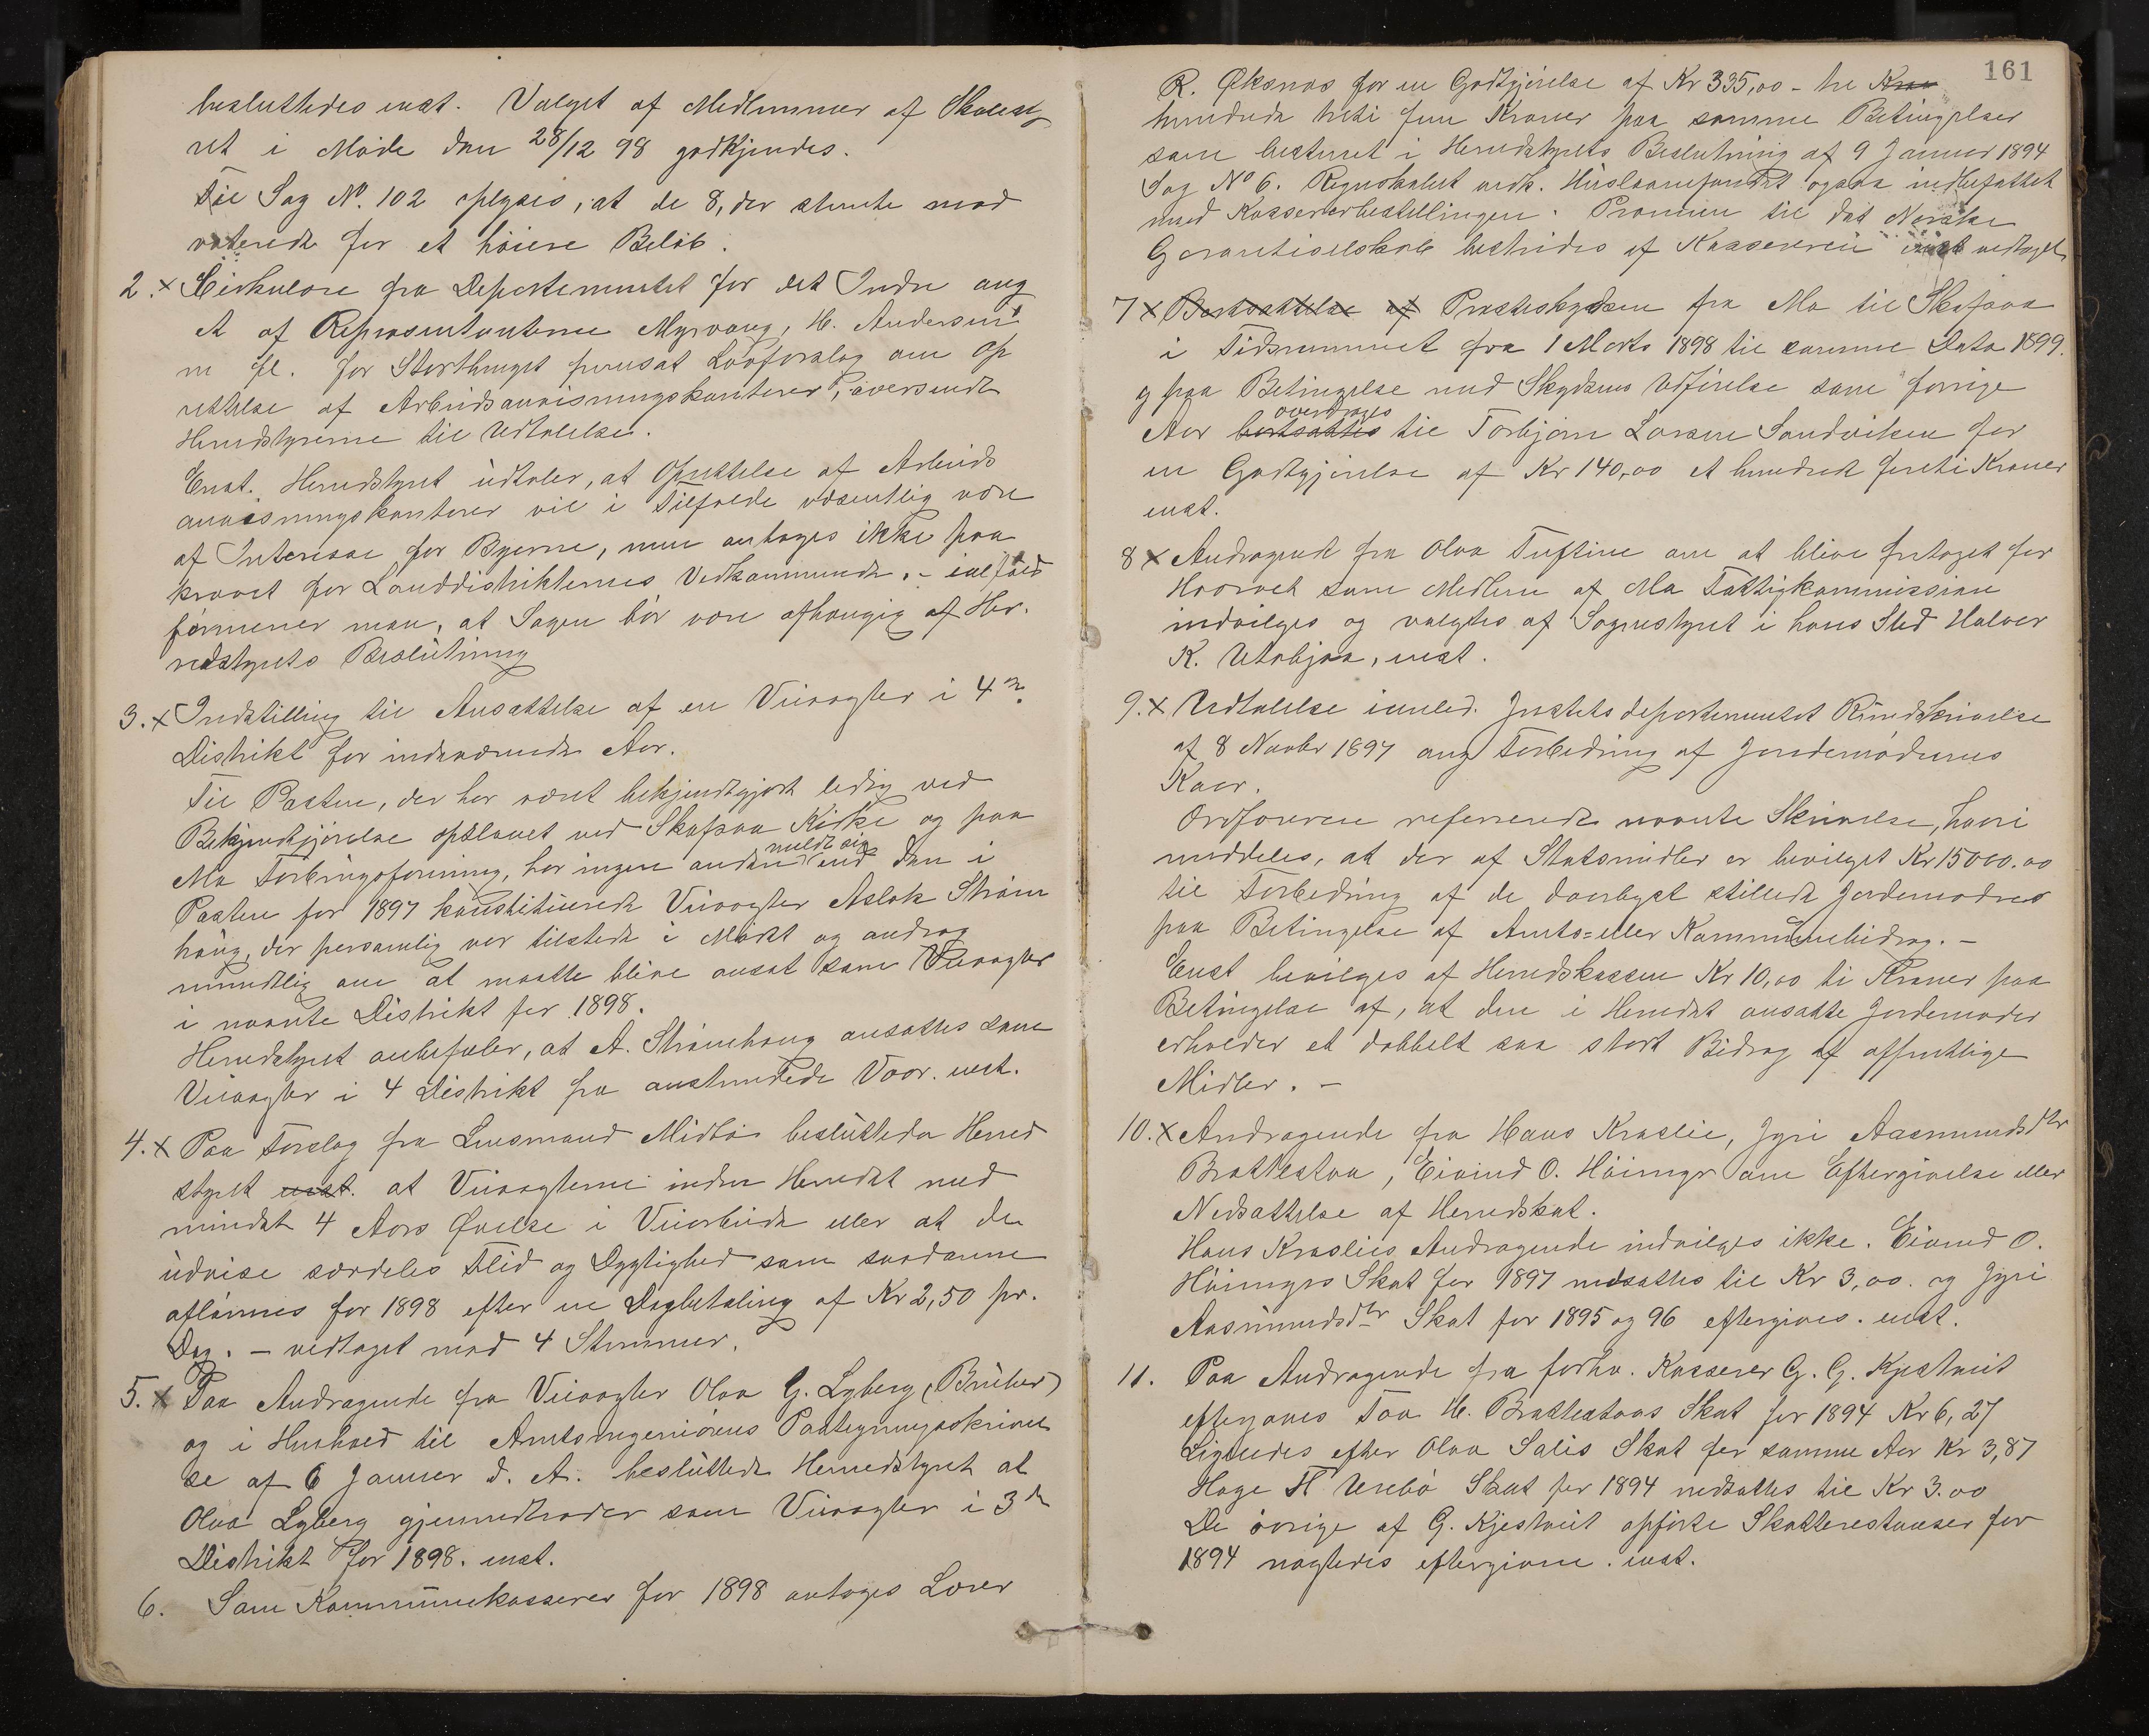 besluttedes enst. Valget af Medlemmer af Skolesty
ret i Møde den 28/12 98 godkjendes.
Til Sag No. 102 oplyses, at de 8, der stemte mod
voterede for et høiere Beløb.
2. x Cirkulære fra Departementet for det Indre ang
et af Repræsentanterne Myrvang, H. Andersen
m fl. for Storthinget fremsat Lovforslag om Op
rettelse af Arbeidsanvisningskontorer, oversendt
Herredstyrerne til Udtalelse.
Enst. Herredstyret udtaler, at Oprettelse af Arbeids
anvisningskontorer vil i Tilfælde væsentlig være
af Interesse for Byerne, men antages ikke paa
krævet for Landdistrikternes Vedkommende. - ialfald
formener man, at Sagen bør være afhængig af Her-
redstyrets Beslutning
3. x Indstilling til Ansættelse af en Veivogter i 4de
Distrikt for indeværende Aar.
Til Posten, der har været bekjendtgjort ledig ved
Bekjendtgjørelse opslaaet ved Skafsaa Kirke og paa
Mo Forbrugsforening, har ingen anden meldt sig end den i
Posten for 1897 konstituerede Veivogter Aslak Strøm
haug, der personlig var tilstede i Mødet og androg
mundtlig om at maatte blive ansat som Veivogter
i nævnte Distrikt for 1898.
Herredstyret anbefaler, at A. Strømhaug ansættes som
Veivogter i 4 Distrikt fra anstundede Vaar. enst.
4. x Paa Forslag fra Lensmand Midbø besluttede Herred
styret enst. at Veivogterne inden Herredet med
mindst 4 Aars Øvelse i Veiarbeide eller at de
udvise særdeles Flid og Dygtighed som saadanne
aflønnes for 1898 efter en Dagbetaling af Kr 2,50 pr.
Dag. - vedtaget mod 4 Stemmer.
5. x Paa Andragende fra Veivogter Olav G. Lyberg (Bruker)
og i Henhold til Amtsingeniørens Paategningsskrivel
se af 6 Januar d. A. besluttede Herredstyret at
Olav Lyberg gjenindtræder som Veivogter i 3de
Distrikt for 1898. enst.
6. Som Kommunekasserer for 1898 antages Lærer
161
R. Øksnes for en Godtgjørelse af Kr 335,00 - tre Kron
hundrede treti fem Kroner paa samme Betingelser
som bestemt i Herredstyrets Beslutning af 9 Januar 1894
Sag No 6. Regnskabet vedk. Huslaanefondet ogsaa indbefattet
med Kassererbestillingen. Præmien til det Norske
Garantiselskab bestrides af Kassereren enst vedtaget
7 x Bortsættelse af Presteskydsen fra Mo til Skafsaa
i Tidsrummet fra 1 Marts 1898 til samme Dato 1899.
g paa Betingelse med Skydsens Udførelse som forrige
Aar bortsættes overdrages til Torbjørn Larsen Sandviken for
en Godtgjørelse af Kr 140,00 et hundrede førti Kroner
enst.
8 x Andragende fra Olav Tuftine om at blive fritaget for
Hvervet som Medlem af Mo Fattigkommission
indvilges og valgtes af Sognestyret i hans Sted Halvor
K. Utabjaa, enst.
9. x Udtalelse imled. Justitsdepartementet Rundskrivelse
af 8 Novbr 1897 ang Forbedring af Jordemødrenes
Kaar.
Ordføreren refererede nævnte Skrivelse, hvori
meddeles, at der af Statsmidler er bevilget Kr 15000.00
til Forbedring af de daarligst stillede Jordemødres
paa Betingelse af Amts- eller Kommunebidrag. -
Enst bevilges af Herredskassen Kr 10,00 ti Kroner paa
Betingelse af, at den i Herredet ansatte Jordemoder
erholder et dobbelt saa stort Bidrag af offentlige
Midler. -
10. x Andragende fra Hans Kraslie, Jyri Aasmundsdtr
Brattestaa, Eivind O. Høimyr om Eftergivelse eller
Nedsættelse af Herredskat.
Hans Kraslies Andragende indvilges ikke. Eivind O.
Høimyrs Skat for 1897 nedsættes til Kr 3,00. og Jyri
Aasmundsdtr Skat for 1895 og 96 eftergives. enst.
11. Paa Andragende fra forhv. Kasserer G. G. Kjestveit
eftergaves Tov H. Brattestaas Skat for 1894 Kr 6,27
Ligeledes efter Olav Salis Skat for samme Aar Kr 3,87
Hage H Urebø Skat for 1894 nedsattes til Kr 3.00
De øvrige af G. Kjestveit opførte Skatterestanser for
1894 nægtedes eftergivne. enst.